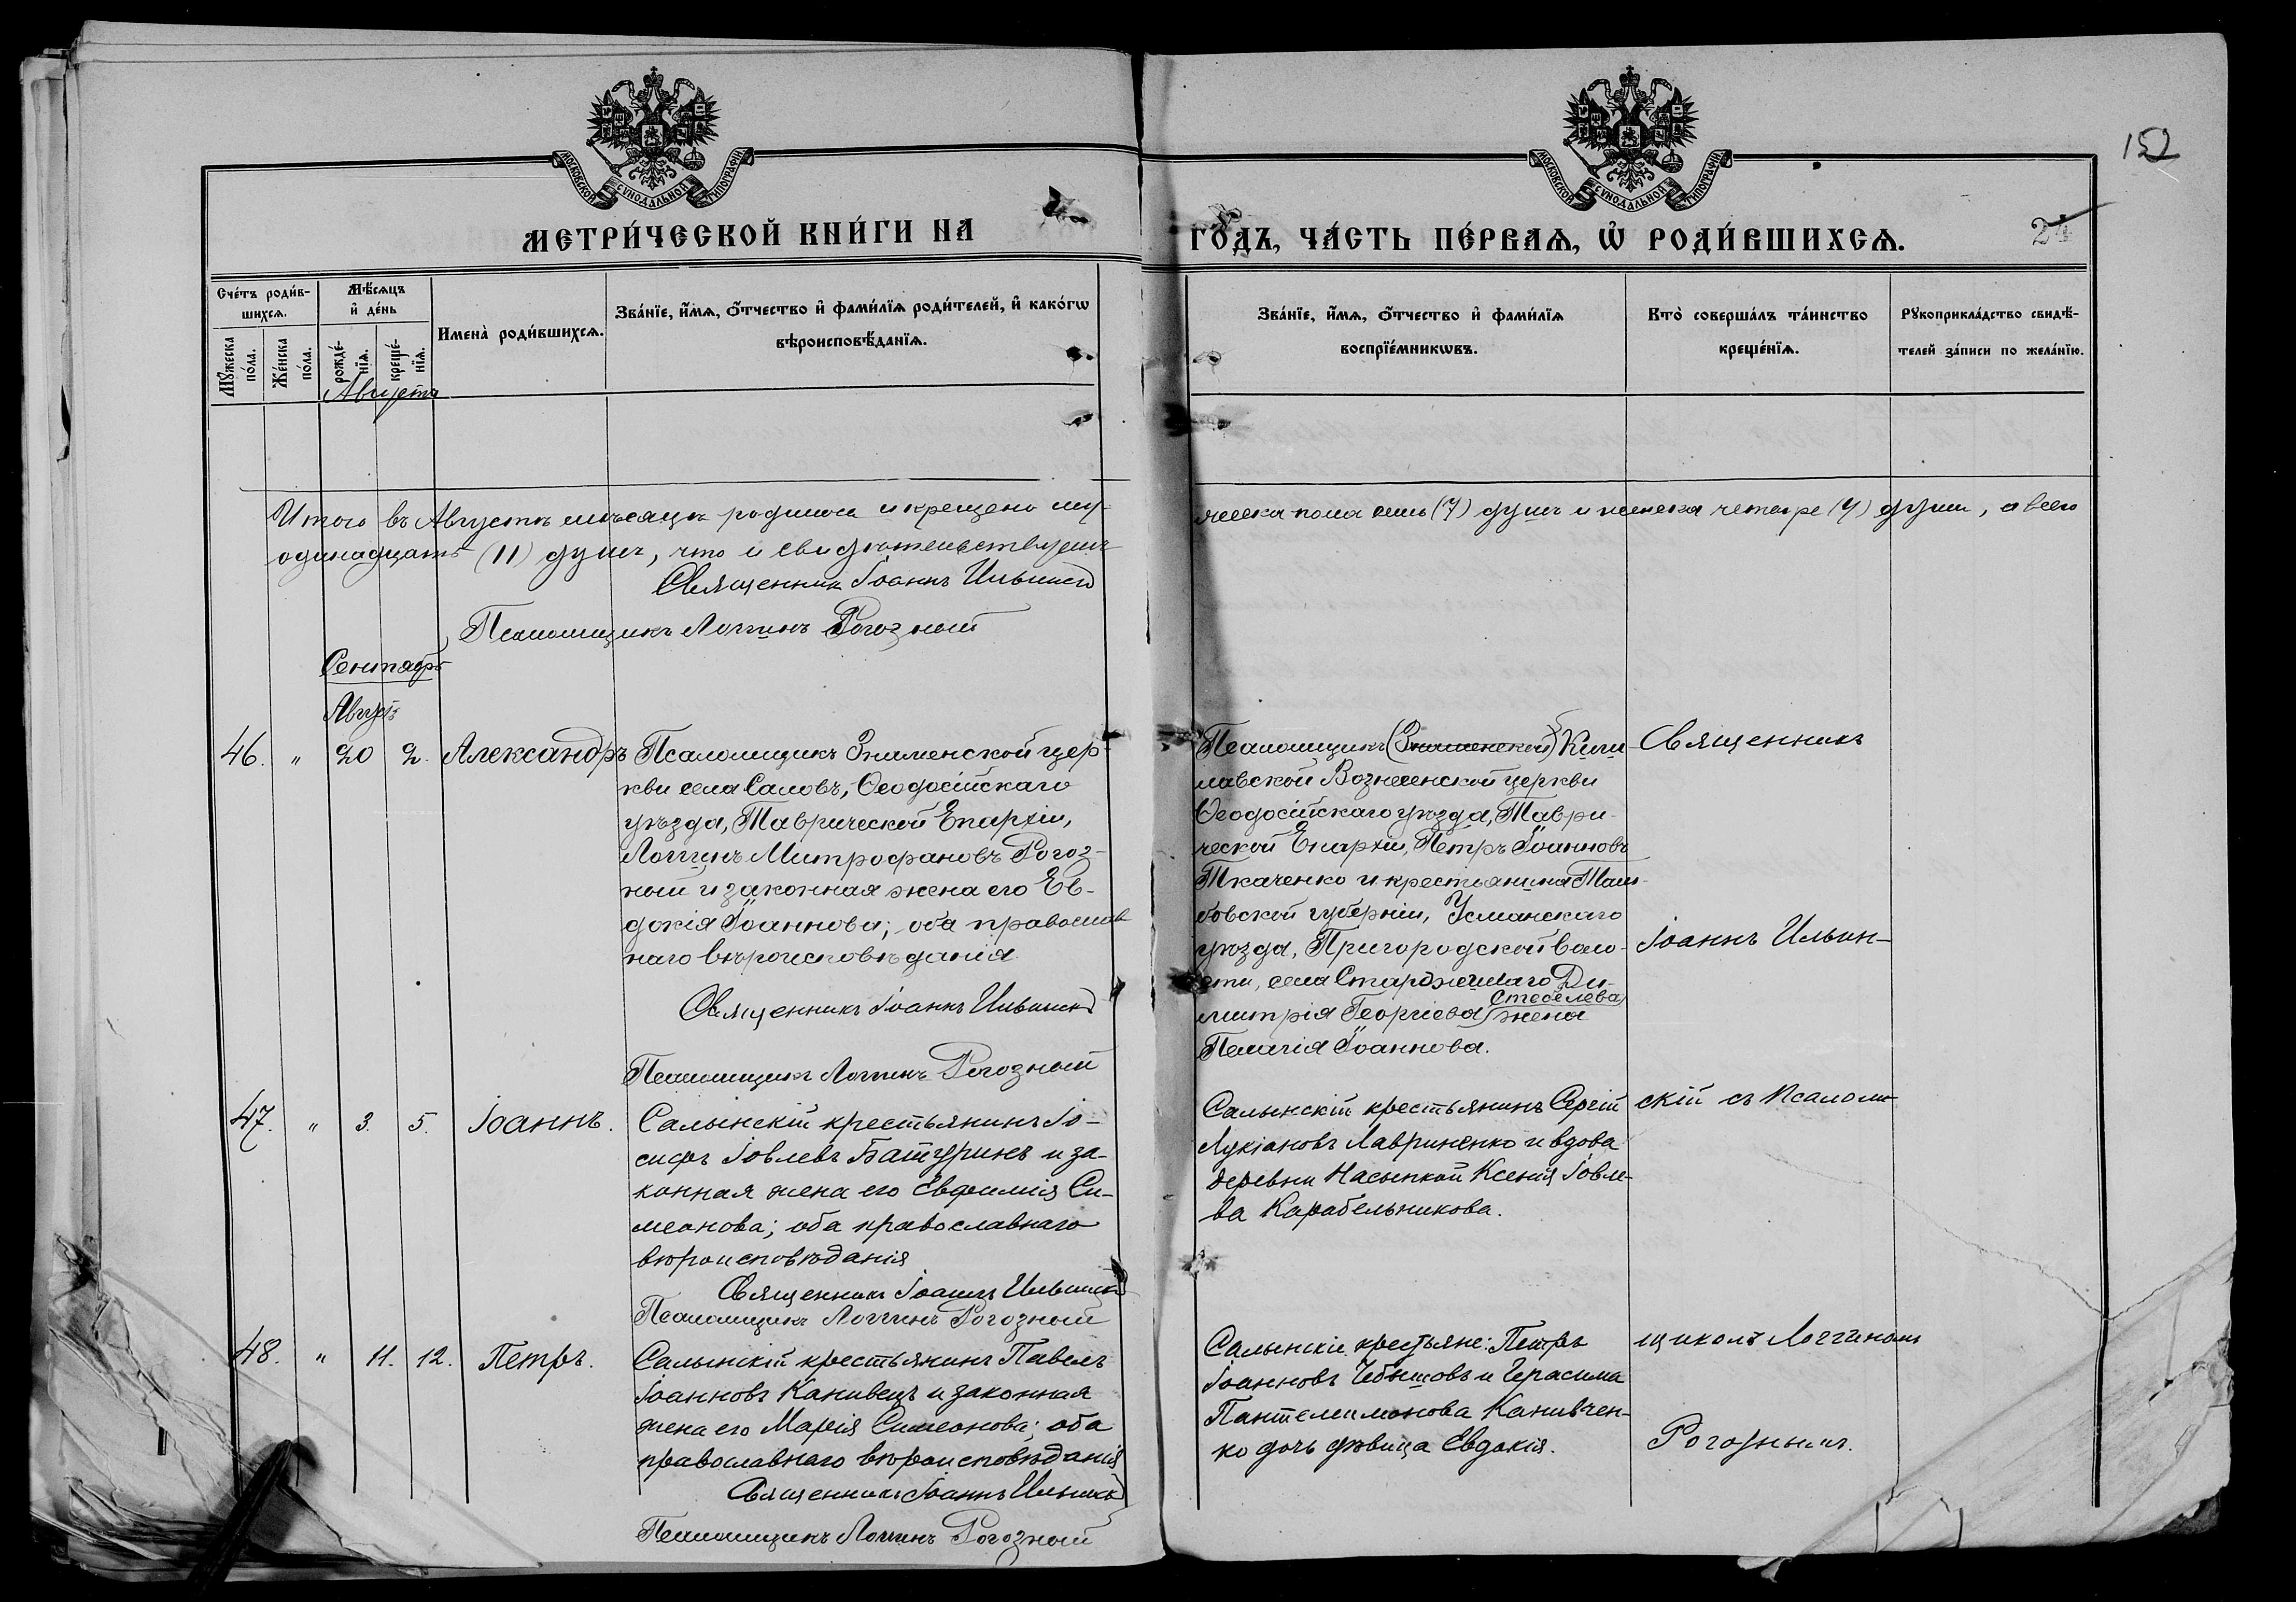 152
МОСКОВСКОЙ СѴНОДАЛЬНОЙ ТИПОГРАФІИ
МОСКОВСКОЙ СѴНОДАЛЬНОЙ ТИПОГРАФІИ
МЕТРИ́ЧЕСКОЙ КНИ́ГИ НА
ГОДЪ, ЧА́СТЬ ПЕ́РВАѦ, Ѡ҆ РОДИ́ВШИХСѦ.
24
Сче́тъ роди́в-
шихсѧ.
Мꙋ́жеска по́ла.
Же́нска по́ла.
Мѣ́сѧцъ
и҆ де́нь
рожде́-
нїѧ.
креще́-
нїѧ.
Имена̀ роди́вшихсѧ.
Зва́нїе, и҆́мѧ, ѻ҆́тчество и҆ фами́лїѧ роди́телей, и҆ како́гѡ
вѣроисповѣ́данїѧ.
Зва́нїе, и҆́мѧ, ѻ҆́тчество и҆ фами́лїѧ
воспрїе́мникѡвъ.
Кто̀ соверша́лъ та́инство
креще́нїѧ.
Рꙋкоприкла́дство свидѣ́-
телей за́писи по жела́нїю.
Августа
Итого въ Августѣ мѣсяцѣ родилось и крещено му-
жеска пола семь (7) душъ и женска четыре (4) души, а всего
одинадцать (11) душъ, что и свидѣтельствуемъ
Священник Іоаннъ Ильинскій
Псаломщикъ Логгинъ Рогозный
Сентябрь
Август
46. " 20 2. Александръ
Псаломщикъ Знаменской цер-
кви села Саловъ, Ѳеодосійскаго
уѣзда, Таврической Епархіи,
Логгинъ Митрофановъ Рогоз-
ный и законная жена его Ев-
докія Іоаннова; оба православ
наго вѣроисповѣданія
Священникъ Іоаннъ Ильинскій
Псаломщикъ Логгинъ Рогозный
Псаломщикъ (Знаменской)
лавской Вознесенской церкви
Ѳеодосійскаго уѣзда, Таври-
ческой Епархіи, Петръ Іоанновъ
Ткаченко и крестьянина Там-
бовской губерніи, Усманскаго
уѣзда, Пригородской воло-
сти, села Ди-
митрія Георгіева Стебелева жена
Пелагія Іоаннова.
Священникъ
Іоаннъ Ильин-
47. " 3. 5. Іоаннъ.
Салынскій крестьянинъ Іо-
сифъ Іовлевъ Батуринъ и за-
конная жена его Евфимія Си-
меонова; оба православнаго
вѣроисповѣданія
Священникъ Іоаннъ Ильинскій
Псаломщикъ Логгинъ Рогозный
Салынскій крестьянинъ Сергій
Лукіановъ Лавриненко и вдова
деревни Насыпкой Ксенія Іовле-
ва Карабельникова.
скій съ Псаломъ
48. " 11. 12. Петръ.
Салынскій крестьянинъ Павелъ
Іоанновъ Канивецъ и законная
жена его Марія Симеонова; оба
православнаго вѣроисповѣданія
Священникъ Іоаннъ Ильинскій
Псаломщикъ Логгинъ Рогозный
Салынскіе крестьяне: Петръ
Іоанновъ Чебышовъ и Герасима
Пантелимонова Канивчен-
ко дочь дѣвица Евдокія.
щикомъ Логгиномъ
Рогознымъ.